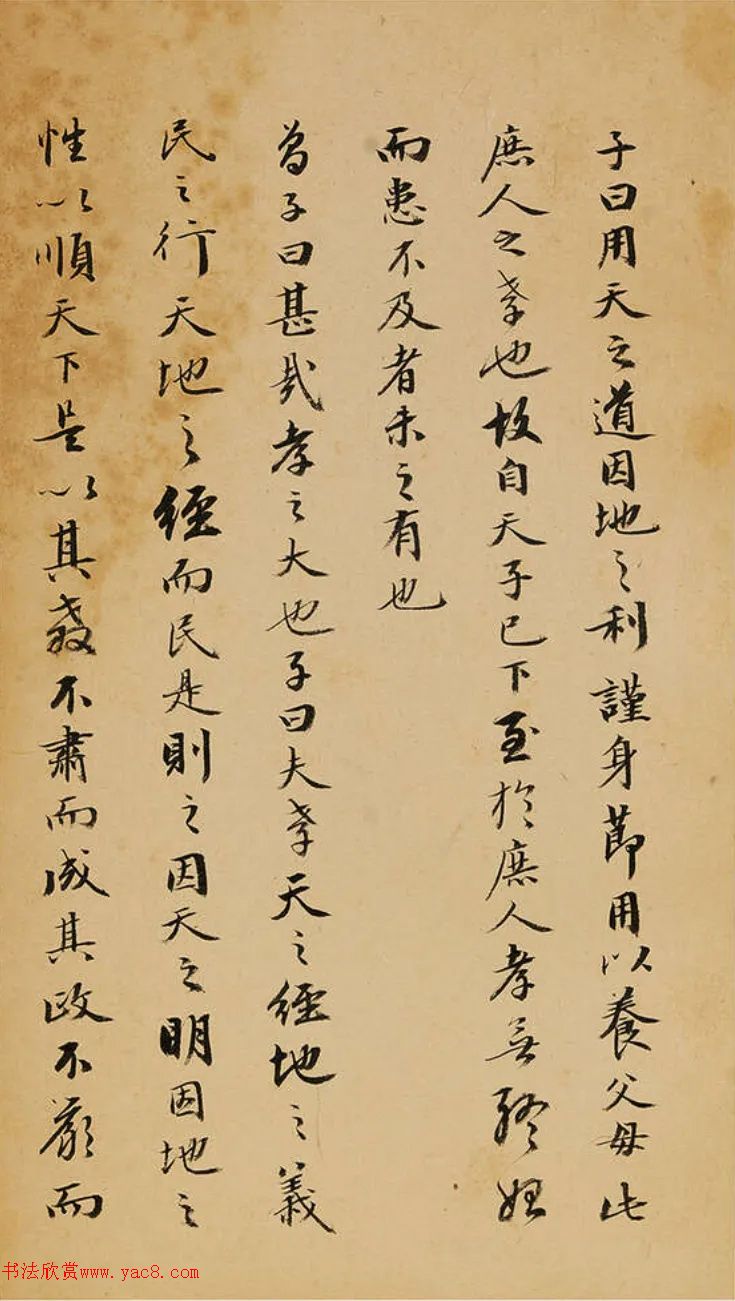 子曰用天之道因地之利謹身節用以養父母此
庶人之孝也故自天子已下至於庶人孝無終始
而患不及者未之有也
曾子曰甚哉孝之大也子曰夫孝天之經地之義
民之行天地之經而民是則之因天之明因地之
性以順天下是以其教不肅而成其政不嚴而
书法欣赏www.yac8.com